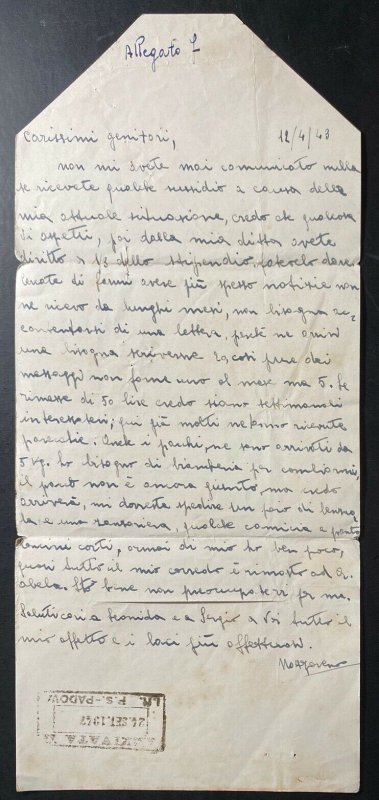 Allegato
Carissimi genitori, 12/4/43
non mi avete mai comunicato nulla
se ricevete qualche sussidio a causa della
mia attuale situazione, credo che qualcosa
vi aspetti, poi dalla mia ditta avete
diritto a 1/3 dello stipendio,
di farmi avere più spesso notizie non
ne ricevo da lunghi mesi, non bisogna ac=
contentarsi di una lettera, perché ne arrivi
una bisogna scriverne 20, così pure dei
messaggi non farne uno al mese ma 5. Le
rimesse di 50 lire credo siano settimanali
interessatevi; qui già molti ne hanno ricevute
parecchie. Anche i pacchi, ne sono arrivati da
5 kg. ho bisogno di biancheria per cambiarmi,
il pacco non è ancora giunto, ma credo
arriverà, mi dovreste spedire un paro di lenzuo
la e una zanzariera, qualche camicia e panta
loncini corti, ormai di mio ho ben poco,
quasi tutto il mio corredo è rimasto ad
Sto bene non preoccupatevi per me.
Saluti cari a Leonida e a Sergio a Voi tutto il
mio affetto e i baci più affettuosi
Nazzareno
ARRIVATA
24.SET.1943
P.S.-PADOV